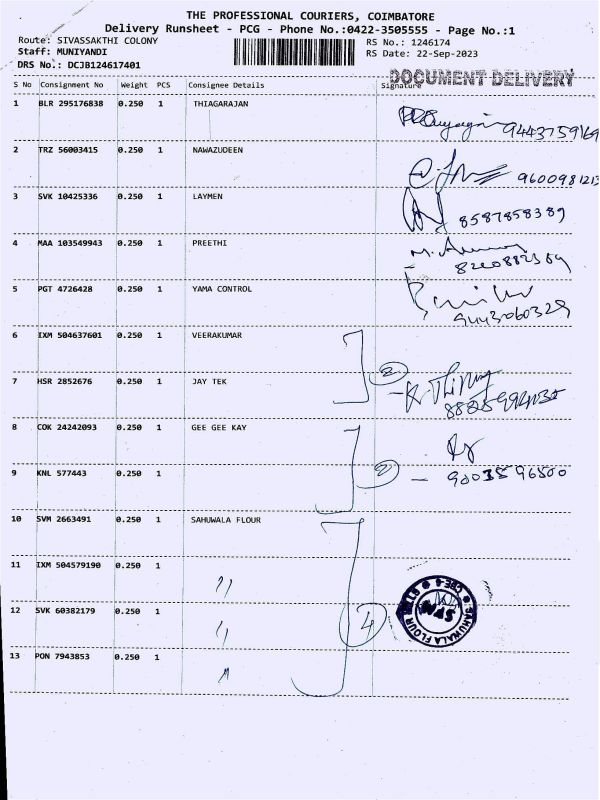 THE PROFESSIONAL COURIERS, COIMBATORE
Delivery Runsheet - PCG - Phone No.:0422-3505555 - Page No.:1
Route: SIVASSAKTHI COLONY RS No.: 1246174
Staff: MUNIYANDI RS Date: 22-Sep-2023
DRS No.: DCJB124617401
DOCUMENT DELIVERY
S No Consignment No Weight PCS Consignee Details Signature
1 BLR 295176838 0.250 1 THIAGARAJAN
9443759169
2 TRZ 56003415 0.250 1 NAWAZUDEEN
9600981213
3 SVK 10425336 0.250 1 LAYMEN
8587858389
4 MAA 103549943 0.250 1 PREETHI
8220882389
5 PGT 4726428 0.250 1 YAMA CONTROL
9443060329
6 IXM 504637601 0.250 1 VEERAKUMAR
2
7 HSR 2852676 0.250 1 JAY TEK
8 COK 24242093 0.250 1 GEE GEE KAY
9 KNL 577443 0.250 1
2
9003596500
10 SVM 2663491 0.250 1 SAHUWALA FLOUR
11 IXM 504579190 0.250 1
〃
12 SVK 60382179 0.250 1 4
〃
13 PON 7943853 0.250 1
〃
SAHUWALA FLOUR
CBE-4